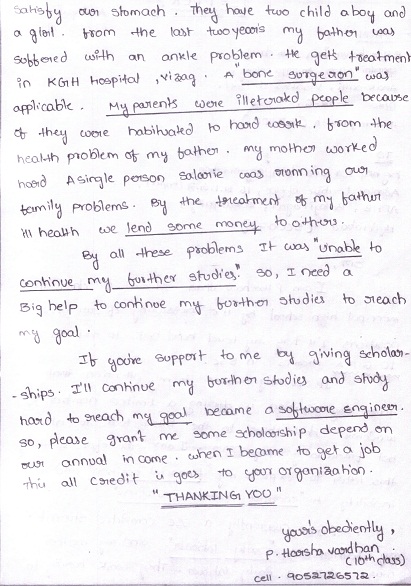 satisfy our stomach. They have two child a boy and
a girl. From the last two years my father was
suffered with an ankle problem. He gets treatment
in KGH hospital, vizag. A "bone surgeron" was
applicable. My parents were illeterakd people because
of they were habituated to hard work. From the
health problem of my father. my mother worked
hard A single person salarie was running our
family problems. By the treatment of my father
ill health we lend some money to others.
By all these problems It was "unable to
continue my further studies". So, I need a
Big help to continue my further studies to reach
my goal.
If you're support to me by giving scholar-
-ships. I'll continue my further studies and study
hard to reach my goal became a software engineer.
so, please grant me some scholorship depend on
our annual income. when I became to get a job
this all credit is goes to your organization.
"THANKING YOU"
your's obediently,
P. Harsha vardhan
(10th class)
cell. 9052726572.